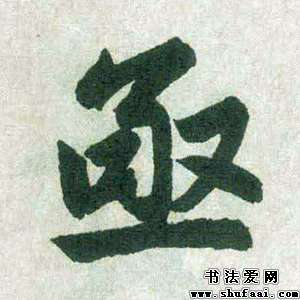 亟
书法爱网
www.shufaai.com